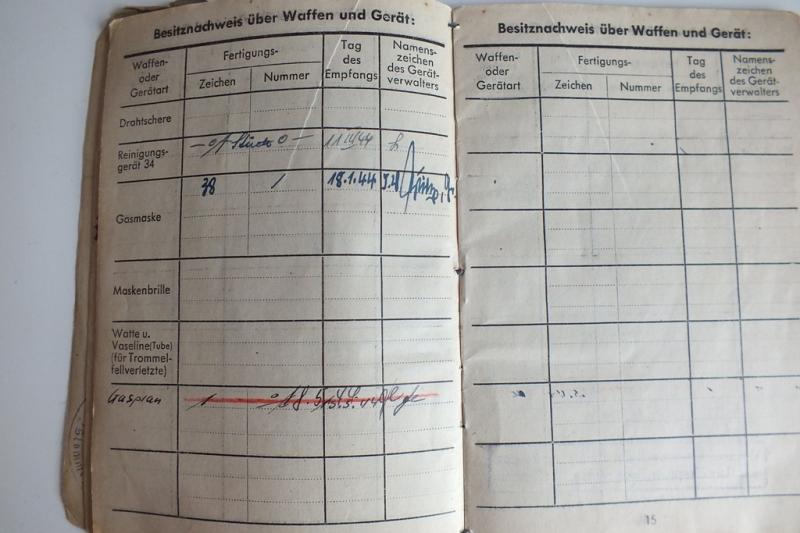 Besitznachweis über Waffen und Gerät:
Waffen-
oder
Gerätart
Fertigungs-
Zeichen
Nummer
Tag
des
Empfangs
Namens-
zeichen
des Gerät-
verwalters
Drahtschere
Reinigungs-
gerät 34
Gasmaske
38 / 18.1.44
Maskenbrille
Watte u.
Vaseline (Tube)
(für Trommel-
fellverletzte)
Besitznachweis über Waffen und Gerät:
Waffen-
oder
Gerätart
Fertigungs-
Zeichen
Nummer
Tag
des
Empfangs
Namens-
zeichen
des Gerät-
verwalters
15